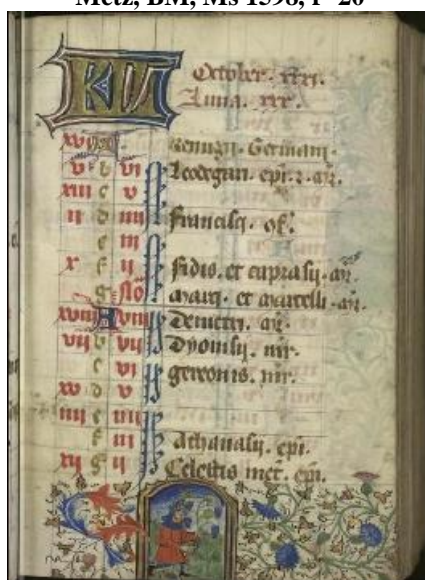 Metz, BM, Ms 1598, f° 20
KL
October. xxxi.
Luna. xxx.
xvi Remigii. Germani.
v b vi Leodegarii. epi. z. mr.
xiii c v
ii d iiii Francisci. of.
e iii
x f ii Fidis. et caprasii. mr.
g Marci. et Marcelli. mr.
xviii A viii Demetri. mr.
vii b vii Dyonisii. mr.
c vi gereonis. mr.
xv d v
iiii e iiii
f iii Athanasii. epi.
xii g ii Celestio met. epi.